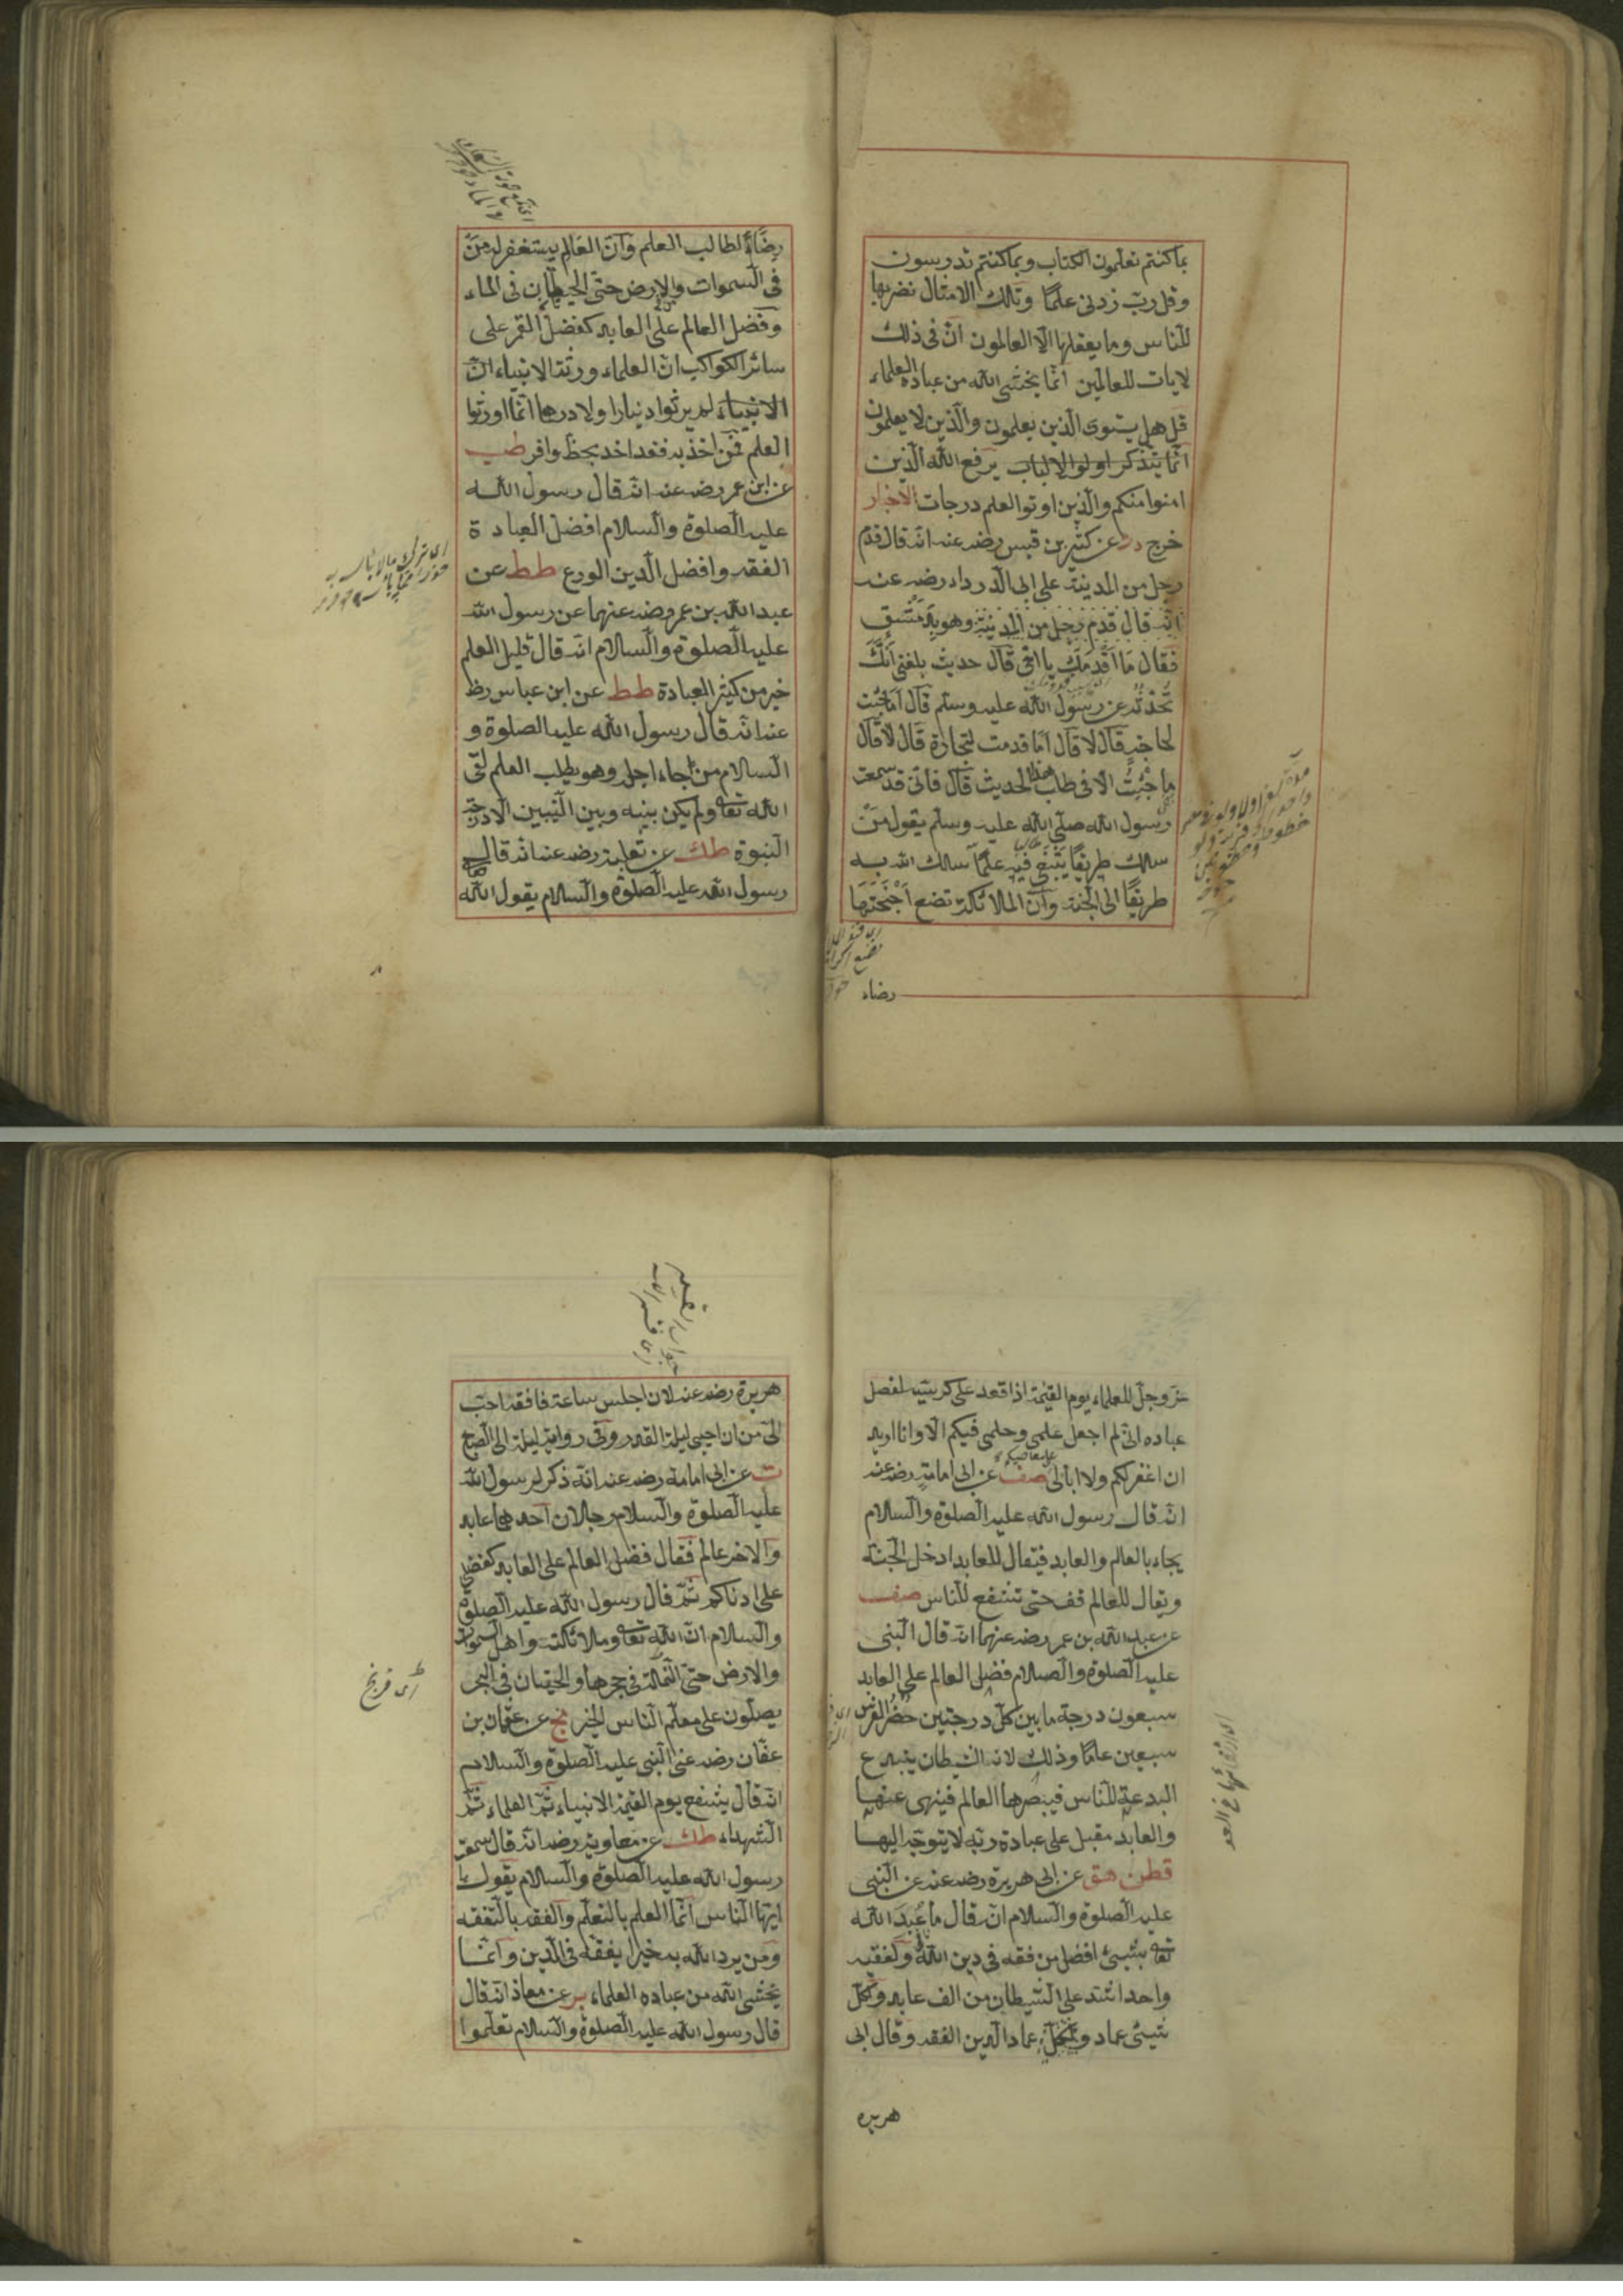 بما كنتم تعلمون الكتاب وبما كنتم تدرسون
وقل رب زدنى علما وتلك الامثال نضربها
للناس وما يعقلها الا العالمون ان فى ذلك
لايات للعالمين انما يخشى الله من عباده العلماء
قل هل يستوى الذين يعلمون والذين لا يعلمون
انما يتذكر اولوا الالباب يرفع الله الذين
امنوا منكم والذين اوتوا العلم درجات الاخبار
خرج در عن كثير بن قيس رضه عنه انه قال قدم
رجل من المدينة على ابى الدرداء رضه عنه
انه قال قدم رجل من المدينة وهو بدمشق
فقال ما اقدمك يا اخى قال حديث بلغنى انك
تحدثه عن رسول الله عليه وسلم قال اما جئت
لحاجة قال لا قال اما قدمت لتجارة قال لا قال
ما جئت الا فى طلب هذا الحديث قال فانى قد سمعت
رسول الله صلى الله عليه وسلم يقول من
سلك طريقا يبتغى فيه علما سلك الله به
طريقا الى الجنة وان الملائكة تضع اجنحتها
رضاء
رضاء لطالب العلم وان العالم يستغفر له من
فى السموات والارض حتى الحيتان فى الماء
وفضل العالم على العابد كفضل القمر على
سائر الكواكب ان العلماء ورثة الانبياء ان
الانبياء لم يرثوا دينارا ولا درهما انما اورثوا
العلم فمن اخذ به فقد اخذ بحظ وافر طب
عن ابن عمر رضه عنه انه قال رسول الله
عليه الصلوة والسلام افضل العبادة
الفقه وافضل الدين الورع طط عن
عبد الله بن عمر رضه عنهما عن رسول الله
عليه الصلوة والسلام انه قال قليل العلم
خير من كثير العبادة طط عن ابن عباس رض
عنه انه قال رسول الله عليه الصلوة و
السلام من جاء اجله وهو يطلب العلم لقى
الله تعا ولم يكن بينه وبين النبيين الا درجة
النبوة طك عن ثعلبة رضه عنه انه قال
رسول الله عليه الصلوة والسلام يقول الله
عز وجل للعلماء يوم القيمة اذا قعد على كرسيه لفصل
عباده انى لم اجعل علمى وحلمى فيكم الا وانا اريد
ان اغفر لكم ولا ابالى صف عن ابى امامة رضه عنه
انه قال رسول الله عليه الصلوة والسلام
يجاء بالعالم والعابد فيقال للعابد ادخل الجنة
ويقال للعالم قف حتى تشفع للناس صف
عن عبد الله بن عمر رضه عنهما انه قال النبى
عليه الصلوة والسلام فضل العالم على العابد
سبعون درجة ما بين كل درجتين حضر الفرس
سبعين عاما وذلك لان الشيطان يبدع
البدعة للناس فيبصرها العالم فينهى عنها
والعابد مقبل على عبادة ربه لا يتوجه اليها
قطن هق عن ابى هريرة رضه عنه عن النبى
عليه الصلوة والسلام انه قال ما عبد الله
تعا بشيئ افضل من فقه فى دين الله ولفقيه
واحد اشد على الشيطان من الف عابد ولكل
شيئ عماد وعماد الدين الفقه وقال ابى
هريره
هريرة رضه عنه لان اجلس ساعة فافقه احب
الى من ان احيى ليلة القدر وفى رواية ليلة الى الصبح
ت عن ابى امامة رضه عنه انه ذكر لرسول الله
عليه الصلوة والسلام رجلان احدهما عابد
والاخر عالم فقال فضل العالم على العابد كفضلى
على ادناكم ثم قال رسول الله عليه الصلوة
والسلام ان الله تعا وملائكته واهل السموات
والارض حتى النملة فى جحرها والحيتان فى البحر
يصلون على معلم الناس الخير مج عن عثمان بن
عفان رضه عن النبى عليه الصلوة والسلام
انه قال يشفع يوم القيمة الانبياء ثم العلماء ثم
الشهداء طك عن معاوية رضه انه قال سمعت
رسول الله عليه الصلوة والسلام يقول يا
ايها الناس انما العلم بالتعلم والفقه بالتفقه
ومن يرد الله به خيرا يفقهه فى الدين وانما
يخشى الله من عباده العلماء بر عن معاذ انه قال
قال رسول الله عليه الصلوة والسلام تعلموا